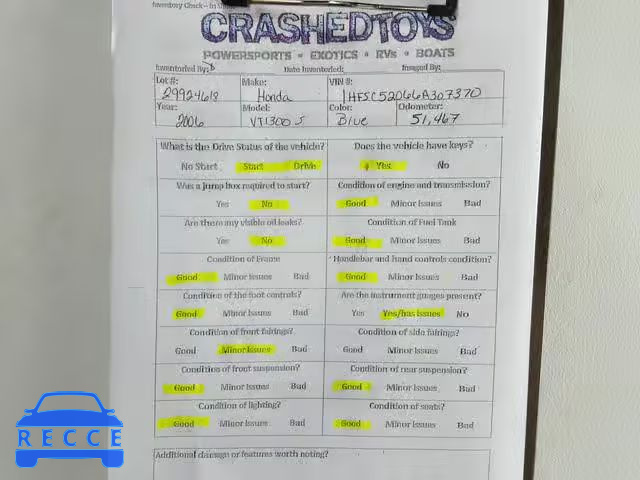 Inventory Check – In
CRASHEDTOYS
POWERSPORTS • EXOTICS • RVs • BOATS
Inventoried By: Date Inventoried: Imaged By:
Lot #: Make: VIN #:
29924618 Honda 1HFSC52066A307370
Year: Model: Color: Odometer:
2006 VT1300 S Blue 51,467
What is the Drive Status of the vehicle? Does the vehicle have keys?
No Start Start Drive Yes No
Was a jump box required to start? Condition of engine and transmission?
Yes No Good Minor Issues Bad
Are there any visible oil leaks? Condition of Fuel Tank
Yes No Good Minor Issues Bad
Condition of Frame Handlebar and hand controls condition?
Good Minor Issues Bad Good Minor Issues Bad
Condition of the foot controls? Are the instrument gauges present?
Good Minor Issues Bad Yes Yes/has issues No
Condition of front fairings? Condition of side fairings?
Good Minor Issues Bad Good Minor Issues Bad
Condition of front suspension? Condition of rear suspension?
Good Minor Issues Bad Good Minor Issues Bad
Condition of lighting? Condition of seats?
Good Minor Issues Bad Good Minor Issues Bad
Additional damage or features worth noting?
RECCE